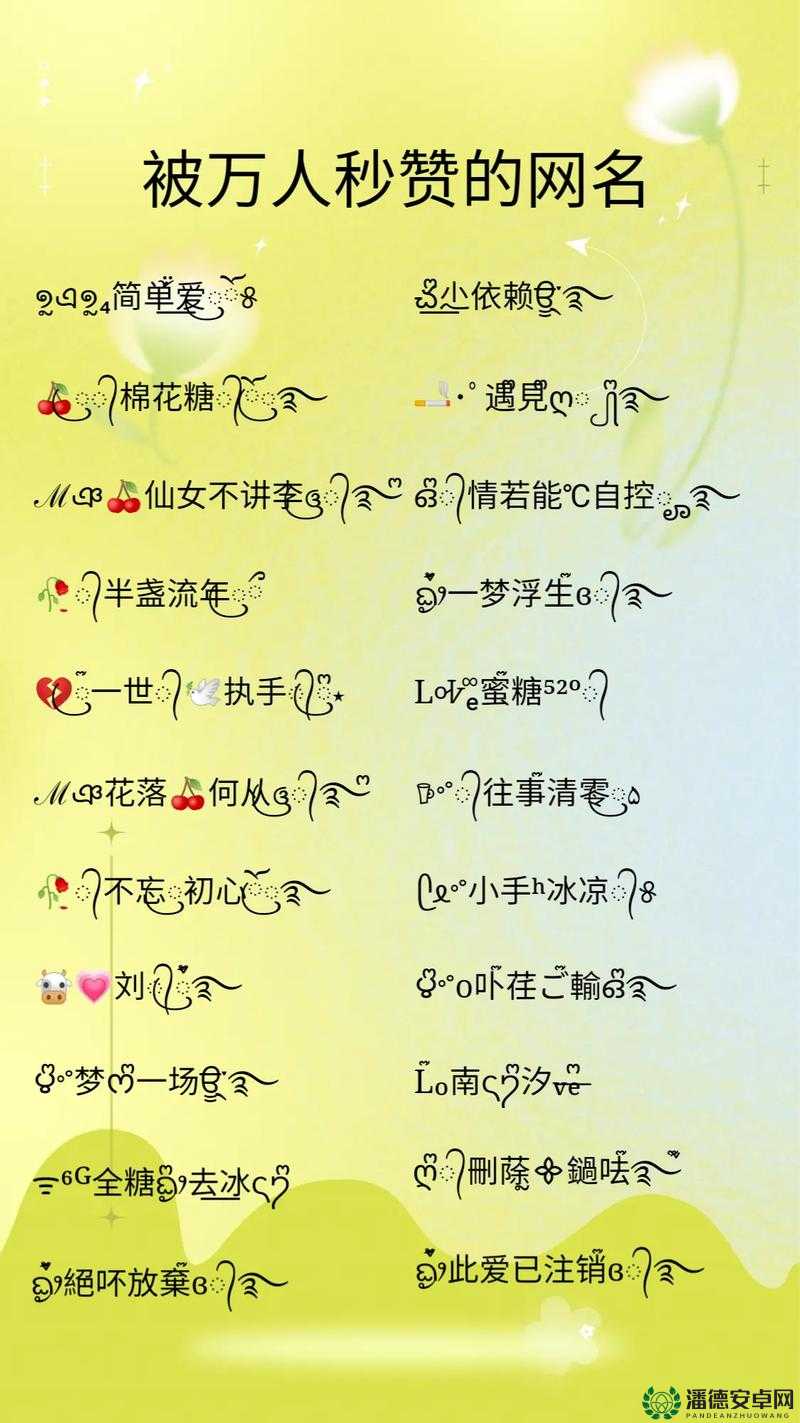 被万人秒赞的网名
简单爱
尘依赖
🍒棉花糖
🚬·°遇見ღ
ℳ🍒仙女不讲李
情若能℃自控
🥀半盏流年
一梦浮生
💔一世🕊执手⋆
LoVe蜜糖⁵²⁰
ℳ花落🍒何从
往事清零
🥀不忘初心
小手ʰ冰凉
🐮💗刘
o吥荏ご輸
梦ෆ一场
Lo南汐
⁶ᴳ全糖去冰
刪蒢鐹呿
絕吥放棄
此爱已注销
潘德安卓网
PANDEANZHUOWANG